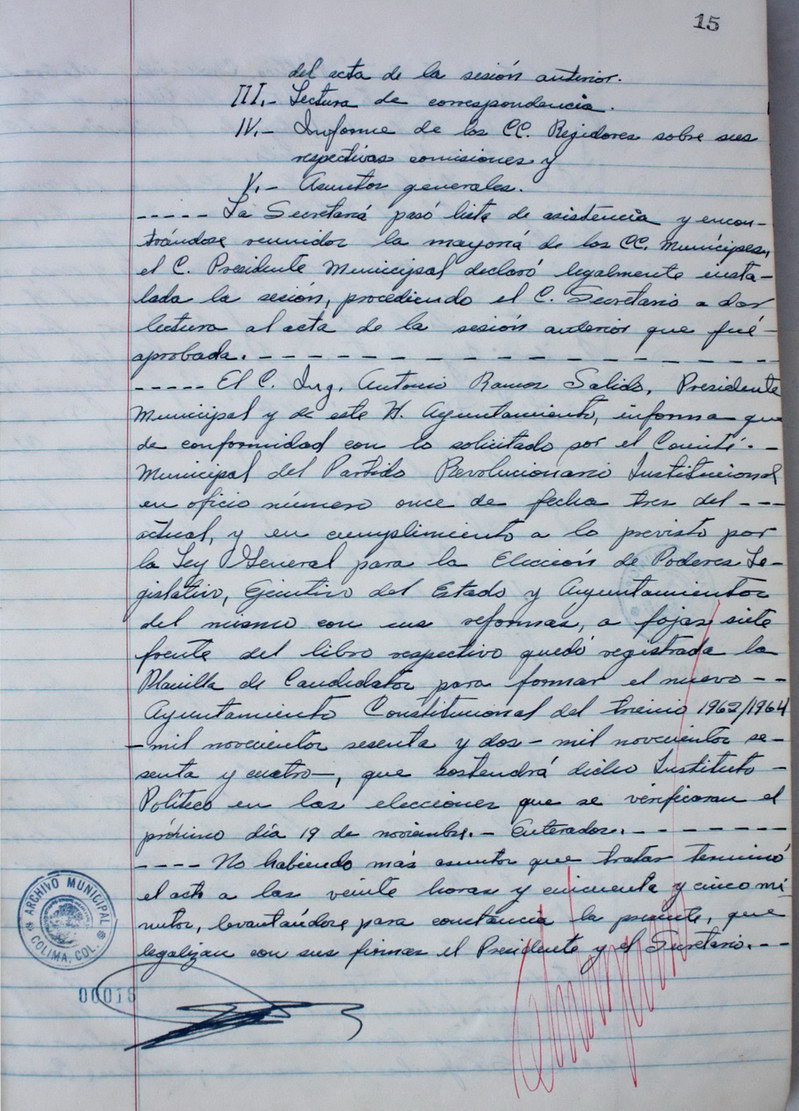 15
del acta de la sesión anterior.
III.- Lectura de correspondencia.
IV.- Informe de los CC. Regidores sobre sus
respectivas comisiones y
V.- Asuntos generales.
----- La Secretaría pasó lista de asistencia y encon-
trándose reunidos la mayoría de los CC. Munícipes,
el C. Presidente Municipal declaró legalmente insta-
lada la sesión, procediendo el C. Secretario a dar
lectura al acta de la sesión anterior que fué-
aprobada. - - - - - - - - - - - - - - - - -
----- El C. Ing. Antonio Ramos Salido, Presidente
Municipal y de este H. Ayuntamiento, informa que
de conformidad con lo solicitado por el Comité.-
Municipal del Partido Revolucionario Institucional
en oficio número once de fecha tres del ---
actual, y en cumplimiento a lo previsto por
la Ley General para la Elección de Poderes Le-
gislativo, Ejecutivo del Estado y Ayuntamientos
del mismo con sus reformas, a fojas siete
frente del libro respectivo quedó registrada la
Planilla de Candidatos para formar el nuevo --
Ayuntamiento Constitucional del trienio 1962/1964
-mil novecientos sesenta y dos - mil novecientos se-
senta y cuatro-, que sostendrá dicho Instituto -
Político en las elecciones que se verificaran el
próximo día 19 de noviembre.- Enterados. - - - - - - -
---- No habiendo más asuntos que tratar terminó
el acto a las veinte horas y cincuenta y cinco mi-
nutos, levantándose para constancia la presente, que
legalizan con sus firmas el Presidente y el Secretario. - - -
ARCHIVO MUNICIPAL
COLIMA, COL.